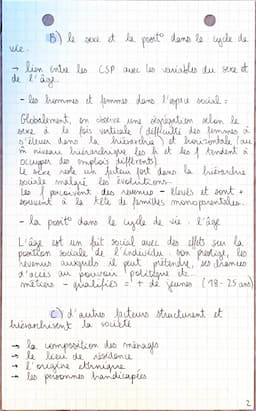 B) le sexe et la posit° dans le cycle de
vie.
→ lien entre les CSP avec les variables du sexe et
de l'âge.
- les hommes et femmes dans l'espace social :
Globalement, on observe une ségrégation selon le
sexe à la fois verticale (difficulté des femmes à
s'élever dans la hiérarchie) et horizontale (au
m niveau hiérarchique les h et les f tendent à
occuper des emplois différents)
Le sexe reste un facteur fort dans la hiérarchie
sociale malgré les évolutions.
Les f perçoivent des revenus - élevés et sont +
souvent à la tête de familles monoparentales.
- la posit° dans le cycle de vie : l'âge
L'âge est un fait social avec des effets sur la
position sociale de l'individu : son prestige, les
revenus auxquels il peut prétendre, ses chances
d'accès au pouvoir politique etc...
métiers - qualifiés = + de jeunes (18-25 ans)
C) d'autres facteurs structurent et
hiérarchisent la société
→ la composition des ménages
→ le lieu de résidence
→ l'origine ethnique
→ les personnes handicapées
2